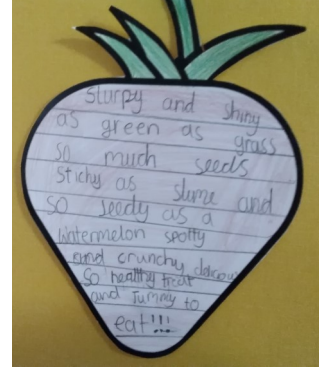 slurpy and shiny
as green as grass
so much seeds
stichy as slime and
so seedy as a
watermelon spotty
and crunchy delicious
so healthy treat
and Tummy to
eat!!!